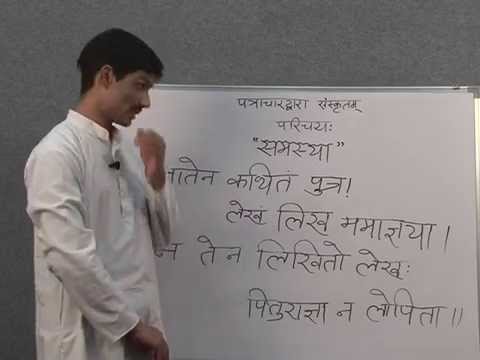 पत्राचारद्वारा संस्कृतम्
परिचयः
"समस्या"
कथितं पुत्र!
लेखं लिख ममाज्ञया।
तेन लिखितो लेखः
पितुराज्ञा न लोपिता॥